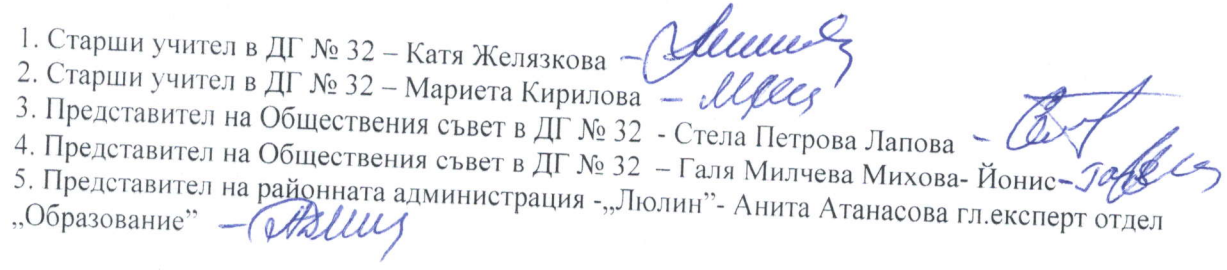 1. Старши учител в ДГ № 32 – Катя Желязкова –
2. Старши учител в ДГ № 32 – Мариета Кирилова –
3. Представител на Обществения съвет в ДГ № 32 - Стела Петрова Лапова -
4. Представител на Обществения съвет в ДГ № 32 – Галя Милчева Михова- Йонис-
5. Представител на районната администрация -„Люлин”- Анита Атанасова гл.експерт отдел
„Образование” –